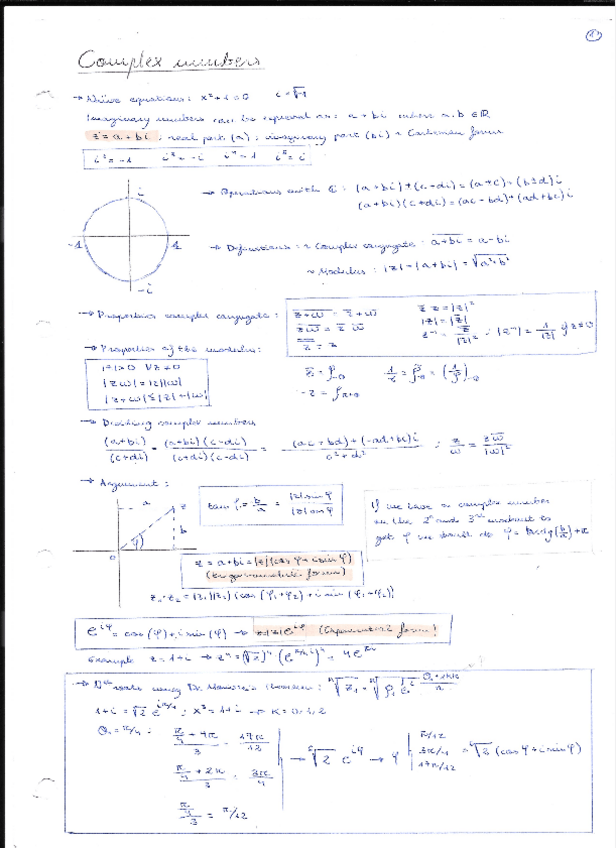 1)
Complex numbers
→ Naive equations: x²+1=0   i=√-1
Imaginary numbers can be expressed as: a+bi where a,b∈ℝ
z=a+bi; real part (a); imaginary part (bi) ~ Cartesian form
i²=-1   i³=-i   i⁴=1   i⁵=i
i
-1   1
-i
→ Operations with C: (a+bi)+(c+di)=(a+c)+(b+d)i
(a+bi)(c+di)=(ac-bd)+(ad+bc)i
→ Definitions: ~ Complex conjugate: \overline{a+bi}=a-bi
~ Modulus: |z|=|a+bi|=√a²+b²
→ Properties complex conjugate:
\overline{z+w}=\overline{z}+\overline{w}   z\overline{z}=|z|²
\overline{zw}=\overline{z} \overline{w}   |z|=|\overline{z}|
\overline{\overline{z}}=z   z⁻¹=\overline{z}/|z|² ; |z⁻¹|=1/|z| if z≠0
→ Properties of the modulus:
|z|>0 ∀z≠0
|zw|=|z||w|
|z+w|≤|z|+|w|
→ Dividing complex numbers
(a+bi)/(c+di)=(a+bi)(c-di)/(c+di)(c-di)=(ac+bd)+(-ad+bc)i/c²+d² ; z/w=z\overline{w}/|w|²
→ Argument:
a   z
b
0   φ
tan φ=b/a=|z|sin φ/|z|cos φ
If we have a complex number
in the 2nd and 3rd quadrant to
get φ we
z=a+bi=|z|(cos φ+i sin φ)
(trigonometric form)
z₁·z₂=|z₁||z₂|(cos(φ₁+φ₂)+i sin(φ₁+φ₂))
e^{iφ}=cos(φ)+i sin(φ) → z=|z|e^{iφ} (Exponential form)
Example z=1+i →
→ Nth roots using De Moivre's theorem:
1+i=√2 e^{iπ/4}; x³=1+i → K=0,1,2
θ₁=π/4:
π/12
3π/4
17π/12
(cos φ+i sin φ)
π/4/3=π/12